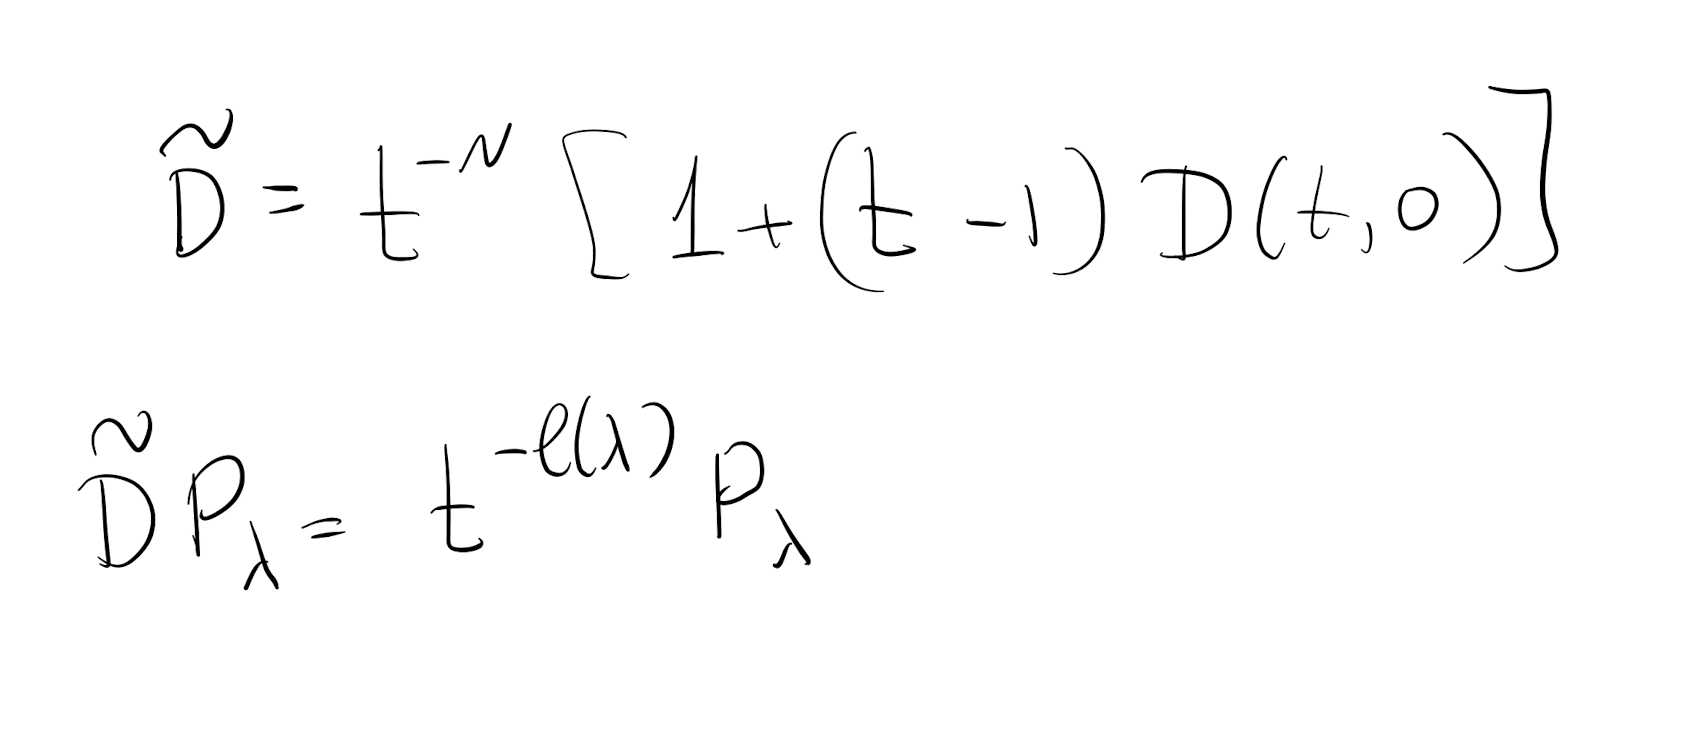 D̃ = t^{-N} [1 + (t - 1) D(t, 0)]
D̃ P_λ = t^{-ℓ(λ)} P_λ